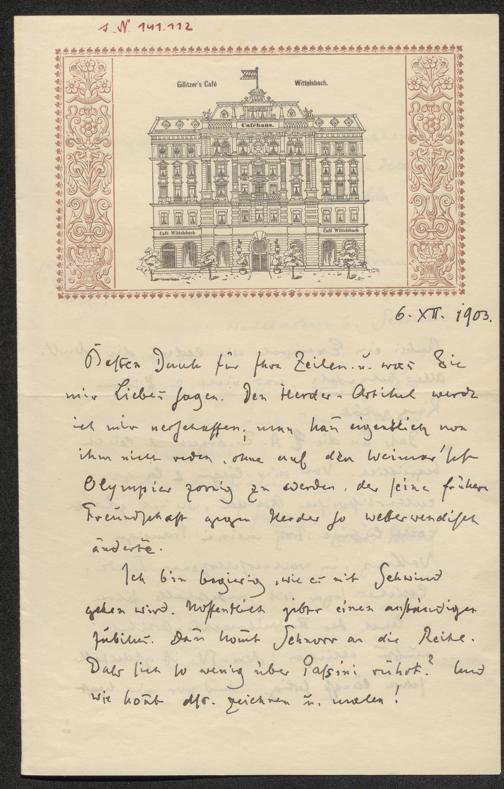 J. N. 141.112
Gillitzer's Café Wittelsbach.
Caféhaus.
Café Wittelsbach Café Wittelsbach
6. XII. 1903.
Besten Dank für Ihre Zeilen u. was Sie
mir Liebes sagen. Den Herder-Artikel werde
ich mir verschaffen, man kann eigentlich von
ihm nicht reden, ohne auf den Weimar'sch
Olympier zornig zu werden, der seine frühere
Freundschaft gegen Herder so wetterwendisch
änderte.
Ich bin begierig, wie es mit Schwind
gehen wird. Hoffentlich gibts einen anständigen
Jubileu. Dann kom̄t Schnorr an die Reihe.
Dass sich so wenig über Passini rührt? Und
wie kon̄t dfr. zeichnen u. malen!